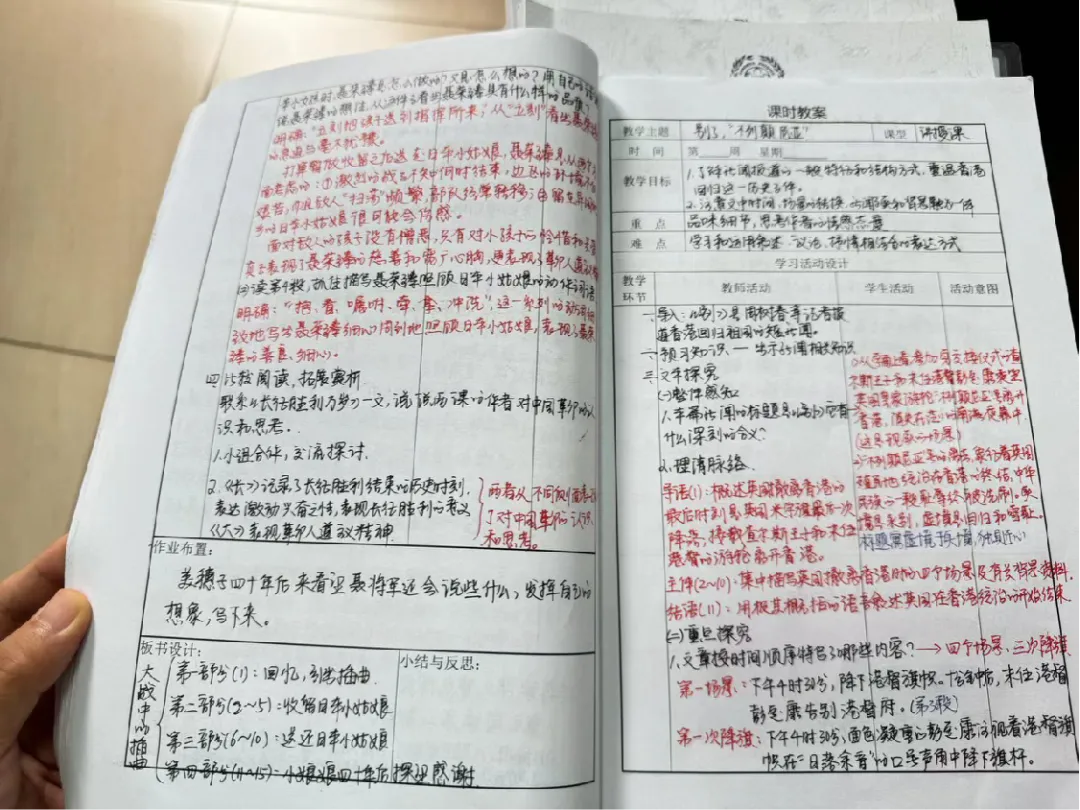 李小姑娘时,聂荣臻是怎么做的?又是怎么想的?用自己的话
说聂荣臻的想法,从这件事看出聂荣臻具有什么样的品质
明确:"立刻把孩子送到指挥所来",从"立刻"看出聂荣臻
的果断与毫不犹豫。
打算留放收留之后送走日本小姑娘,聂荣臻是从两个方
面考虑的:①激烈的战斗不知何时结束,边区的环境
艰苦,
面对敌人的孩子没有憎恶,只有对小孩子的怜惜和
聂荣臻的慈善和宽广心胸,更表现了革命人道
㈢读第4段,抓住描写聂荣臻照顾日本小姑娘的动作词语
明确:"抱、看、嘱咐、牵、拿、冲洗"这一系列的动词
致地写出聂荣臻细心周到地照顾日本小姑娘,表现了聂荣
臻的善良、细心。
四、比较阅读,拓展赏析
联系《长征胜利万岁》一文,说说两课的作者对中国革命的认
识和思考。
1.小组合作,交流探讨.
2.《长》记录了长征胜利结束的历史时刻,
表达激动兴奋之情,表现长征胜利的意义
《大》表现革命人道主义精神
两者从不同侧面表达
了对中国革命的认识
和思考。
作业布置:
美穗子四十年后来看望聂将军还会说些什么,发挥自己的
想象,写下来。
板书设计:
大战中的插曲
第一部分(1):回忆,引出插曲.
第二部分(2~5):收留日本小姑娘
第三部分(6~10):送还日本小姑娘
第四部分(11~15):小姑娘四十年后探望感谢
小结与反思:
课时教案
教学主题 别了,"不列颠尼亚" 课型 讲授课
时 间 第 周 星期
教学目标
1.了解新闻报道的一般特征和结构方式,重温香港
回归这一历史事件。
2.注意文中时间,场景的转换,新闻要素和背景融为一体
重 点 品味细节,思考作者的情感态度
难 点 学习和运用叙述、议论、抒情相结合的表达方式
学习活动设计
教学环节 教师活动 学生活动 活动意图
一、导入:《别》是周树春等记者报
道香港回归祖国的短新闻。
二、预习知识——出示新闻相关知识
三、文本探究
㈠整体感知
1.本篇新闻的标题是什么?它有
什么深刻的含义?
2.理清脉络.
导语(1):概述英国撤离香港的
最后时刻是英国米字旗最后一次
降落,接载查尔斯王子和末任
港督的游轮离开香港。
主体(2~10):集中描写英国撤离香港时的四个场景及有关背景资料.
结语(11):用极其概括的语言叙述英国在香港统治的开始结束.
参加完交接仪式的查
尔斯王子和末任港督彭定康乘坐
英国皇家游轮"不列颠尼亚"号离开
香港,消失在茫茫的南海夜幕中
(这是现实的场景)
的离去,象征着英国
殖民地统治在香港的终结,中华
民族的一段耻辱终被洗刷。
㈡重点探究
1.文章按时间顺序特写了哪些内容?→四个场景、三次降旗
第一场景:下午4时30分,降下港督旗帜。末任港督
彭定康告别港督府。(第3段)
第一次降旗:下午4时30分,面色凝重的彭定康注视着港督旗
帜在"日落余音"的号角声中降下旗杆。